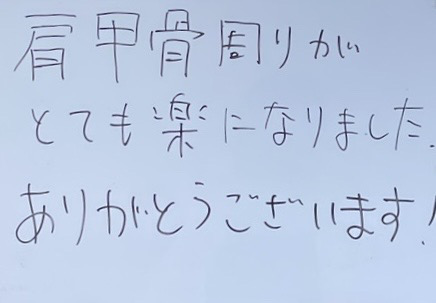 肩甲骨周りが
とても楽になりました.
ありがとうございます!